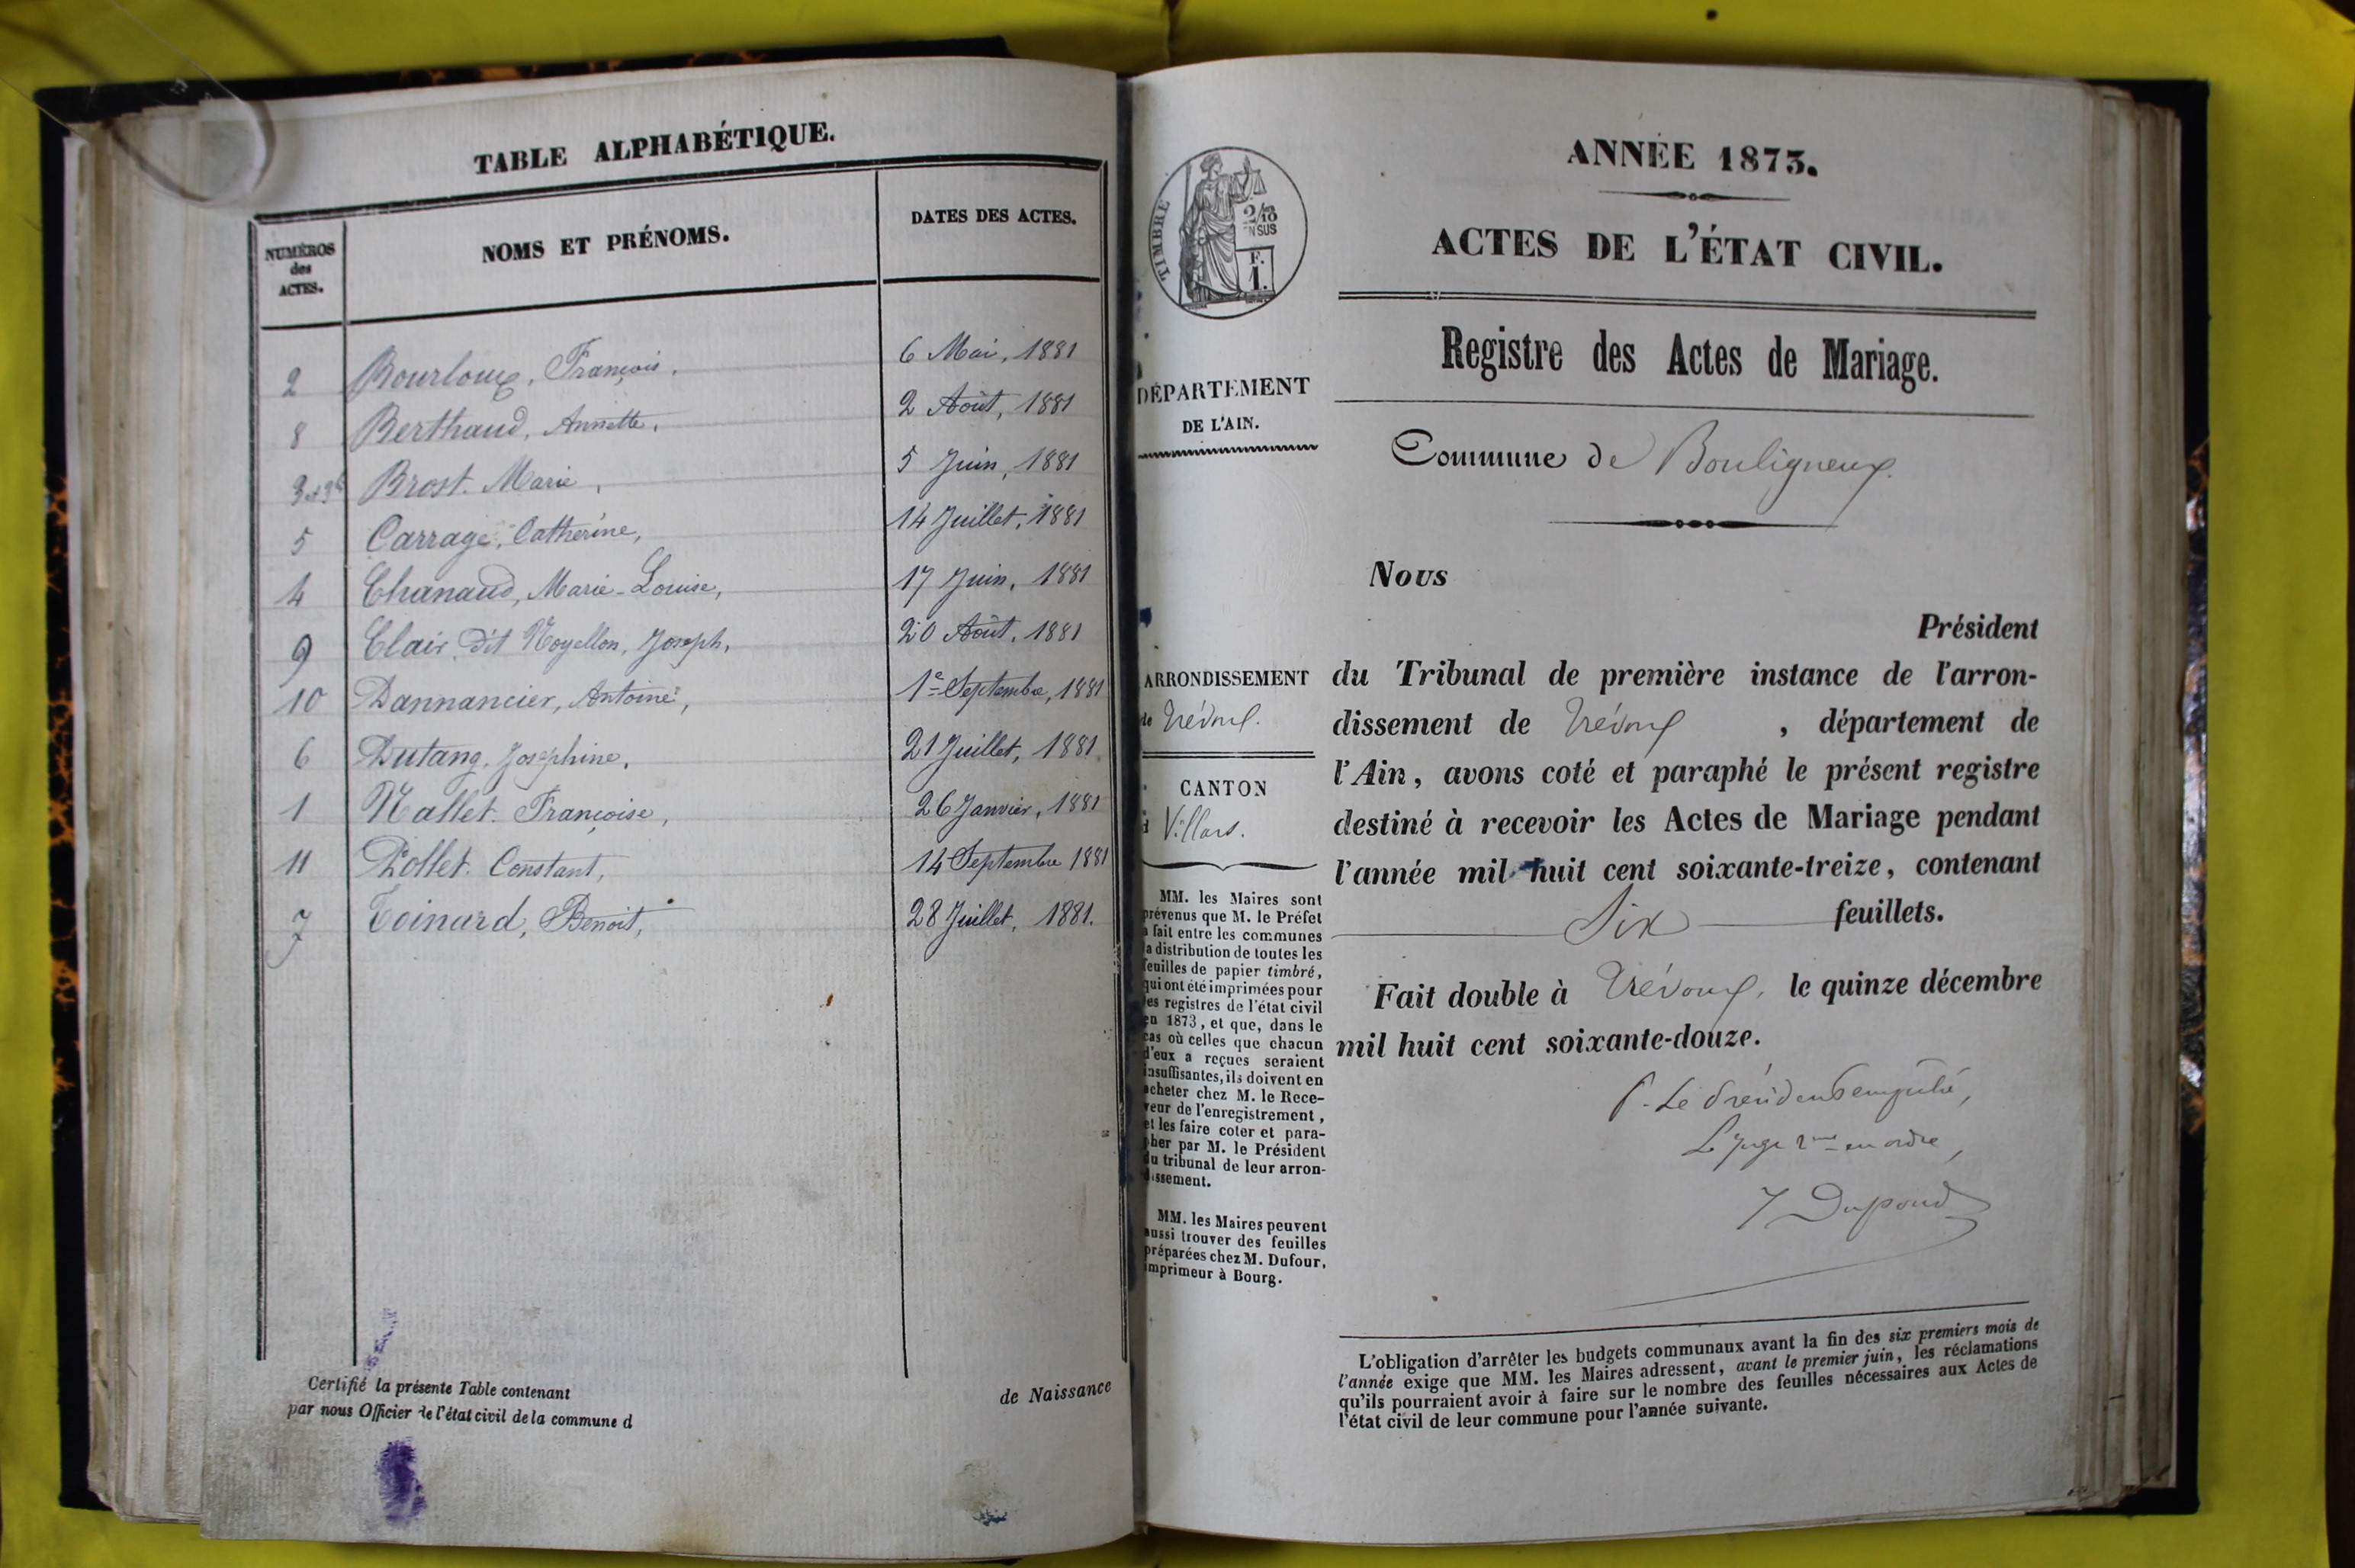 TABLE ALPHABÉTIQUE.
NUMÉROS
des
ACTES.
NOMS ET PRÉNOMS.
DATES DES ACTES.
2 Bourloux, François, 6 Mai, 1881
8 Berthaud, Annette, 2 Août, 1881
3 et 3b Brost. Marie, 5 Juin, 1881
5 Carrage, Catherine, 14 Juillet, 1881
4 Chanaud, Marie-Louise, 17 Juin, 1881
9 Clair dit Noyellon, Joseph, 20 Août, 1881
10 Dannancier, Antoine, 1e Septembre, 1881
6 Dutang, Josephine, 21 Juillet, 1881
1 Nallet. Françoise, 26 Janvier, 1881
11 Pollet. Constant, 14 Septembre 1881
7 Toinard, Benoit, 28 Juillet, 1881.
Certifié la présente Table contenant de Naissance
par nous Officier de l'état civil de la commune d
ANNÉE 1873.
ACTES DE L'ÉTAT CIVIL.
TIMBRE
2/10
EN SUS
F.
1.
Registre des Actes de Mariage.
DÉPARTEMENT
DE L'AIN.
Commune de Bouligneux.
Nous
Président
ARRONDISSEMENT
de Trévoux.
CANTON
d Villars.
du Tribunal de première instance de l'arron-
dissement de Trévoux, département de
l'Ain, avons coté et paraphé le présent registre
destiné à recevoir les Actes de Mariage pendant
l'année mil huit cent soixante-treize, contenant
Six feuillets.
Fait double à Trévoux, le quinze décembre
mil huit cent soixante-douze.
P. Le Président empêché,
Le Juge 2me en ordre,
J Dupond
MM. les Maires sont
prévenus que M. le Préfet
a fait entre les communes
la distribution de toutes les
feuilles de papier timbré,
qui ont été imprimées pour
les registres de l'état civil
en 1873, et que, dans le
cas où celles que chacun
d'eux a reçues seraient
insuffisantes, ils doivent en
acheter chez M. le Rece-
veur de l'enregistrement,
et les faire coter et para-
pher par M. le Président
du tribunal de leur arron-
dissement.
MM. les Maires peuvent
aussi trouver des feuilles
préparées chez M. Dufour,
imprimeur à Bourg.
L'obligation d'arrêter les budgets communaux avant la fin des six premiers mois de
l'année exige que MM. les Maires adressent, avant le premier juin, les réclamations
qu'ils pourraient avoir à faire sur le nombre des feuilles nécessaires aux Actes de
l'état civil de leur commune pour l'année suivante.